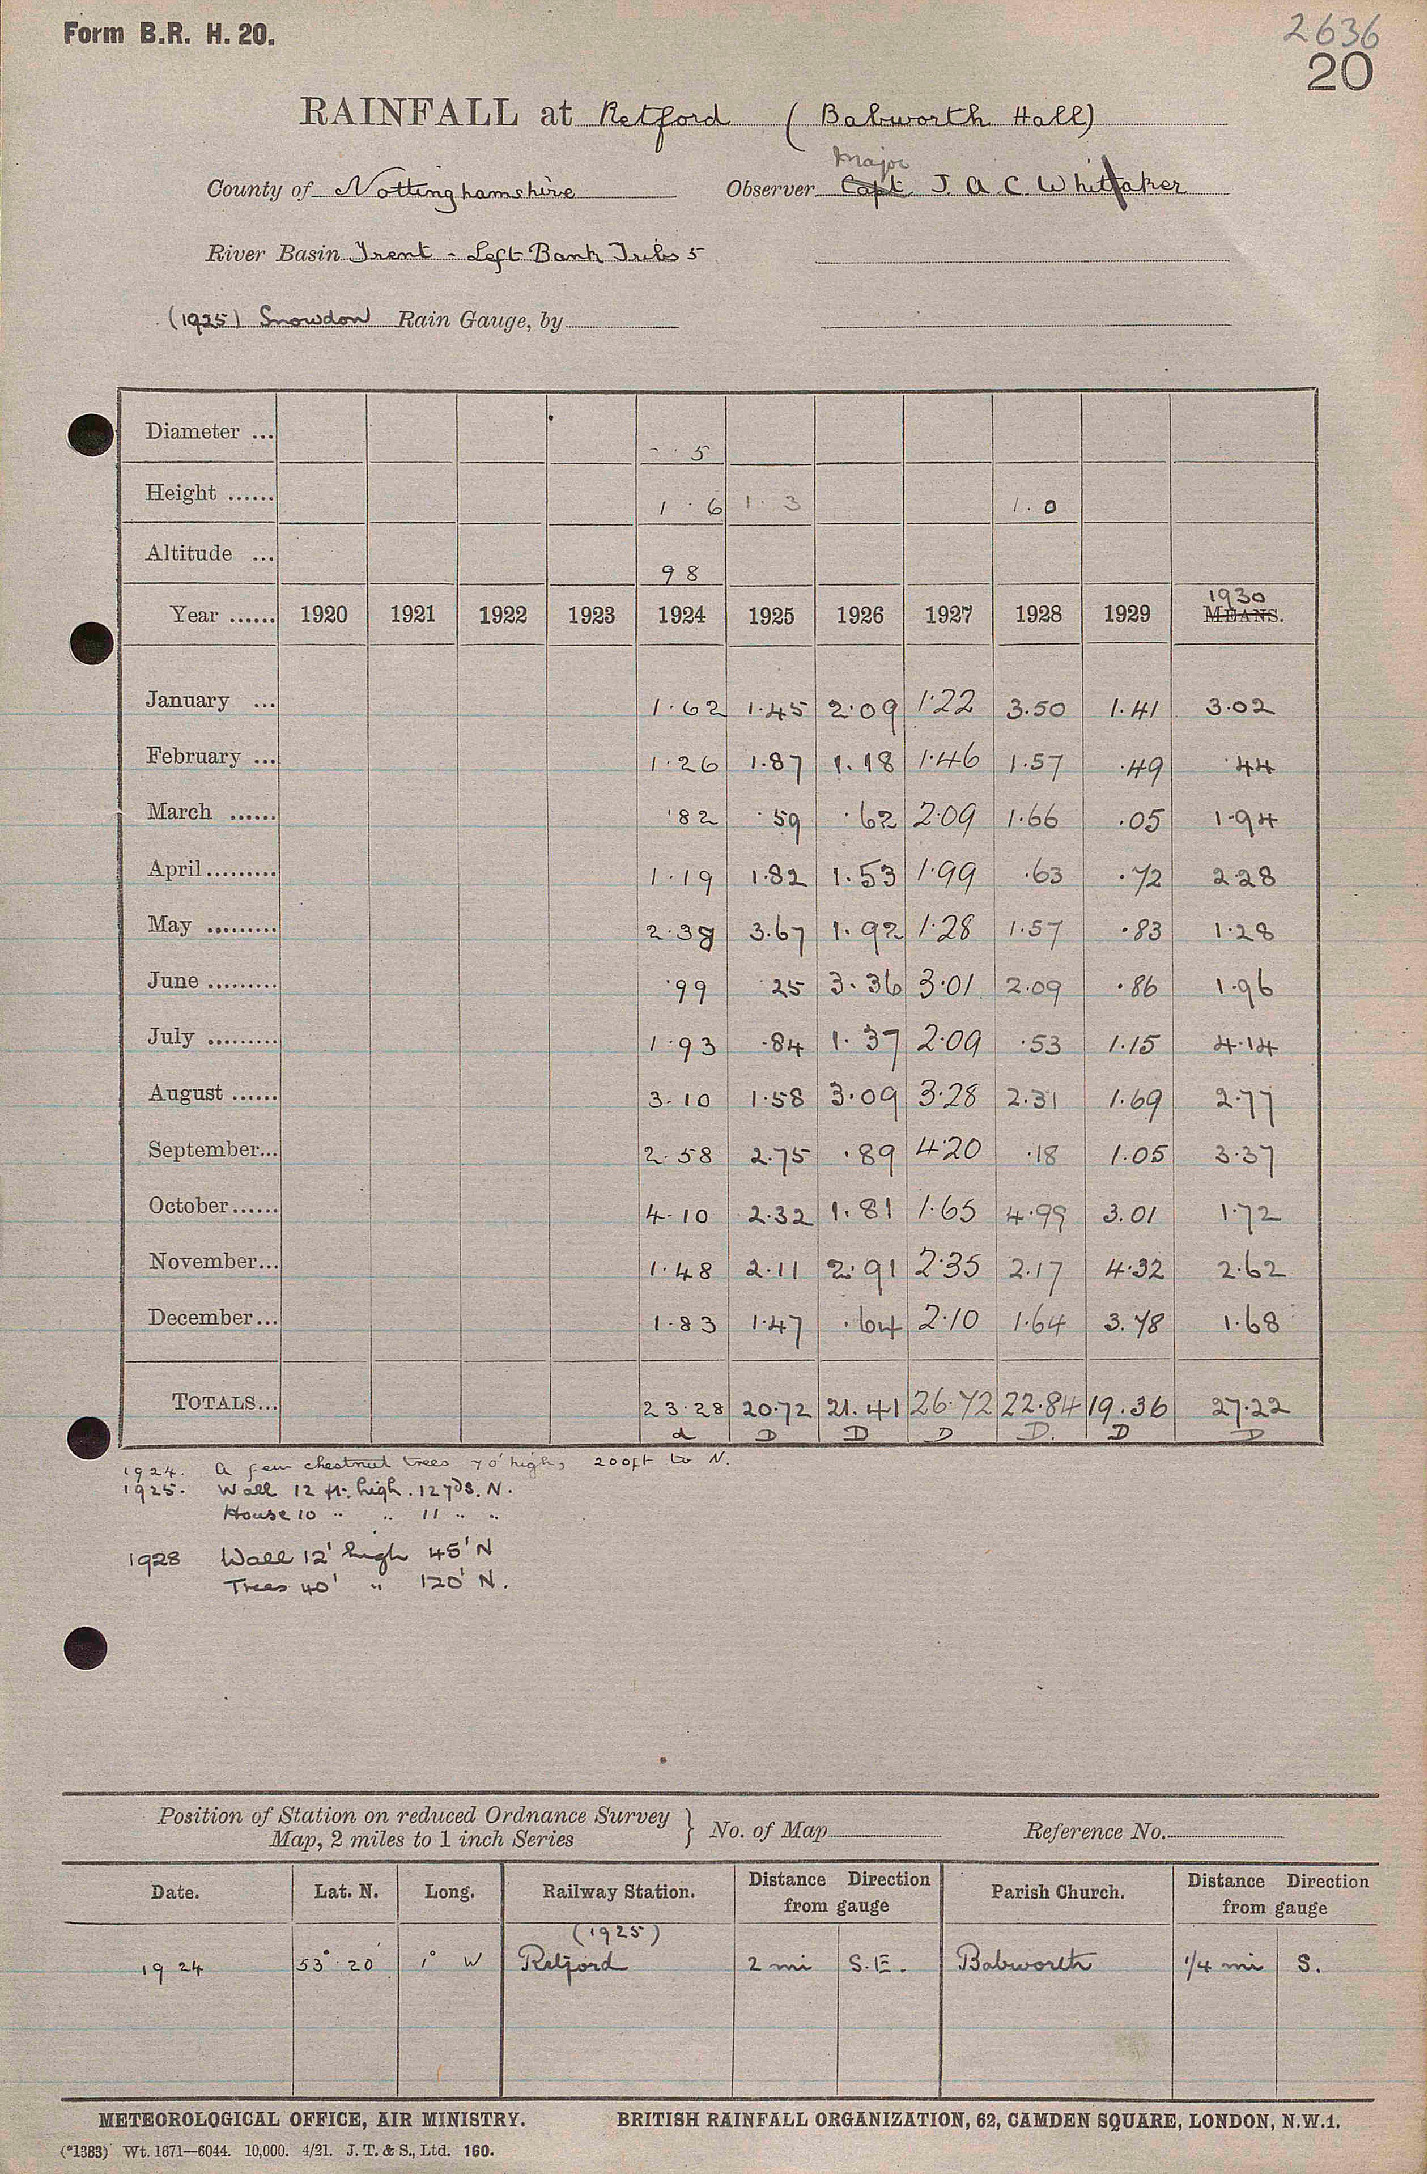 Form B.R. H. 20.
2636
20
RAINFALL at Retford (Babworth Hall)
Major
County of Nottinghamshire Observer Capt. J. A. C. Whittaker
River Basin Trent - Left Bank Tribs 5
(1925) Snowdon Rain Gauge, by
Diameter ... 5
Height ...... 1 . 6 1 . 3 1 . 0
Altitude ... 98
1930
Year ...... 1920 1921 1922 1923 1924 1925 1926 1927 1928 1929 MEANS.
January ... 1.62 1.45 2.09 1.22 3.50 1.41 3.02
February ... 1.26 1.87 1.18 1.46 1.57 .49 .44
March ...... .82 .59 .62 2.09 1.66 .05 1.94
April ......... 1.19 1.82 1.53 1.99 .63 .72 2.28
May ......... 2.38 3.67 1.92 1.28 1.57 .83 1.28
June ......... .99 .25 3.36 3.01 2.09 .86 1.96
July ......... 1.93 .84 1.37 2.09 .53 1.15 4.14
August ...... 3.10 1.58 3.09 3.28 2.31 1.69 2.77
September... 2.58 2.75 .89 4.20 .18 1.05 3.37
October...... 4.10 2.32 1.81 1.65 4.99 3.01 1.72
November... 1.48 2.11 2.91 2.35 2.17 4.32 2.62
December... 1.83 1.47 .64 2.10 1.64 3.78 1.68
TOTALS... 23.28 20.72 21.41 26.72 22.84 19.36 27.22
d D D D D. D D
1924. A few chestnut trees 70' high, 200ft to N.
1925. Wall 12 ft. high. 12 yds. N.
House 10 " " 11 " "
1928 Wall 12' high 45' N
Trees 40' " 120' N.
Position of Station on reduced Ordnance Survey
Map, 2 miles to 1 inch Series } No. of Map Reference No.
Date. Lat. N. Long. Railway Station. Distance from gauge Direction Parish Church. Distance from gauge Direction
(1925)
1924 53° 20' 1° W Retford 2 mi S.E. Babworth 1/4 mi S.
METEOROLOGICAL OFFICE, AIR MINISTRY. BRITISH RAINFALL ORGANIZATION, 62, CAMDEN SQUARE, LONDON, N.W.1.
(*1383) Wt. 1671—6044. 10,000. 4/21. J. T. & S., Ltd. 160.